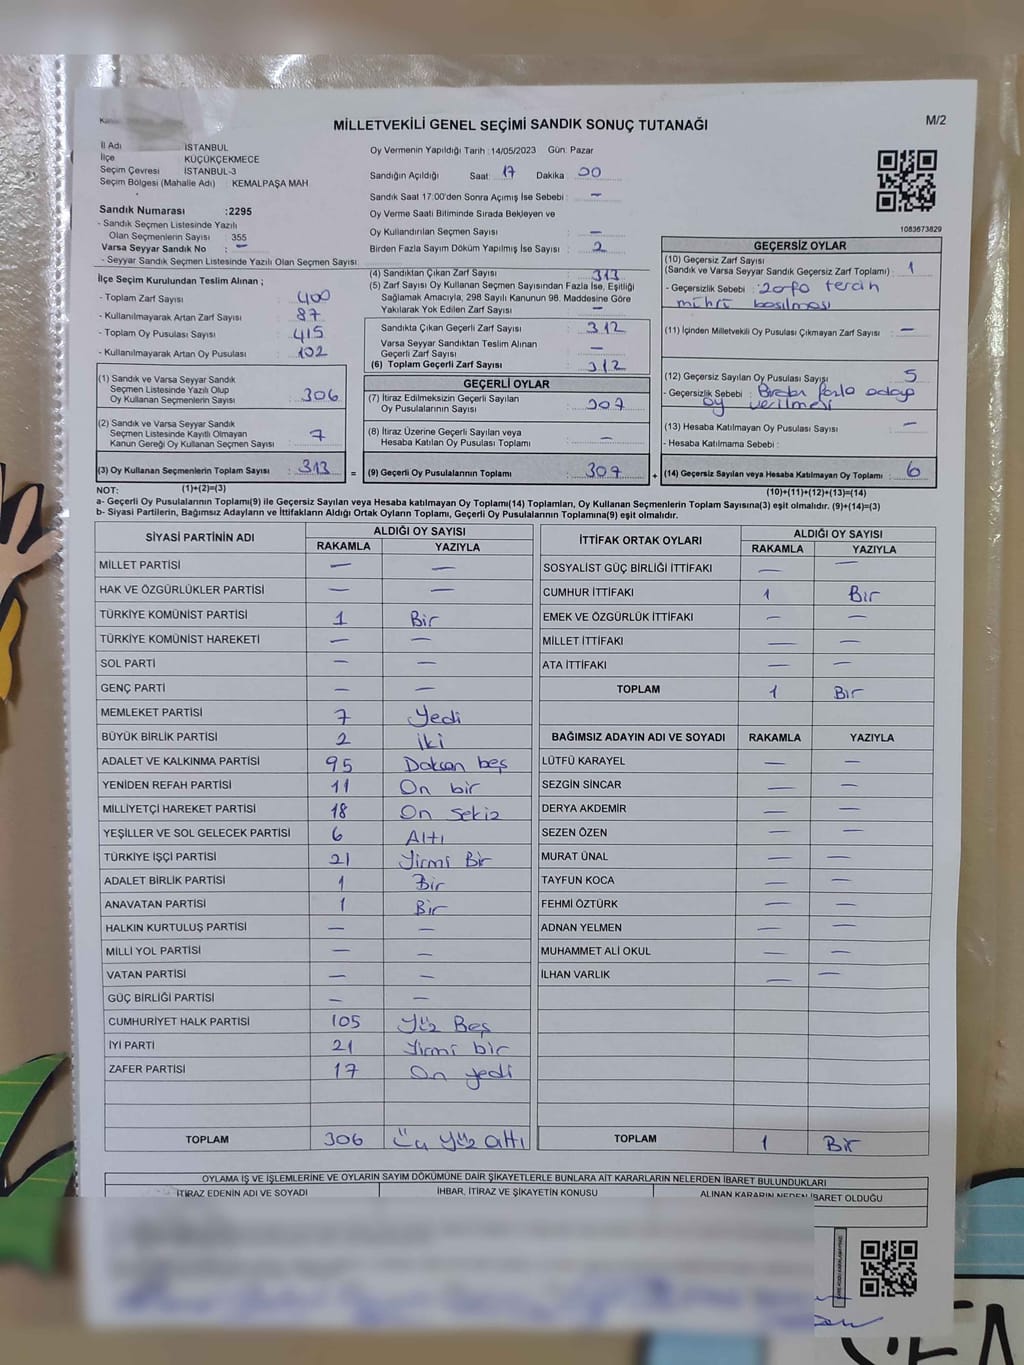 MİLLETVEKİLİ GENEL SEÇİMİ SANDIK SONUÇ TUTANAĞI
M/2
İl Adı : İSTANBUL
İlçe KÜÇÜKÇEKMECE
Seçim Çevresi İSTANBUL-3
Seçim Bölgesi (Mahalle Adı) : KEMALPAŞA MAH
Sandık Numarası :2295
- Sandık Seçmen Listesinde Yazılı
Olan Seçmenlerin Sayısı : 355
Varsa Seyyar Sandık No : —
- Seyyar Sandık Seçmen Listesinde Yazılı Olan Seçmen Sayısı:
Oy Vermenin Yapıldığı Tarih :14/05/2023 Gün: Pazar
Sandığın Açıldığı Saat: 17 Dakika 00
Sandık Saat 17:00'den Sonra Açımış İse Sebebi : —
Oy Verme Saati Bitiminde Sırada Bekleyen ve
Oy Kullandırılan Seçmen Sayısı : —
Birden Fazla Sayım Döküm Yapılmış İse Sayısı : 2
1083673829
İlçe Seçim Kurulundan Teslim Alınan ;
- Toplam Zarf Sayısı : 400
- Kullanılmayarak Artan Zarf Sayısı : 87
- Toplam Oy Pusulası Sayısı : 415
- Kullanılmayarak Artan Oy Pusulası : 102
(1) Sandık ve Varsa Seyyar Sandık
Seçmen Listesinde Yazılı Olup
Oy Kullanan Seçmenlerin Sayısı : 306
(2) Sandık ve Varsa Seyyar Sandık
Seçmen Listesinde Kayıtlı Olmayan
Kanun Gereği Oy Kullanan Seçmen Sayısı : 7
(3) Oy Kullanan Seçmenlerin Toplam Sayısı : 313 =
(1)+(2)=(3)
(4) Sandıktan Çıkan Zarf Sayısı : 313
(5) Zarf Sayısı Oy Kullanan Seçmen Sayısından Fazla İse, Eşitliği
Sağlamak Amacıyla, 298 Sayılı Kanunun 98. Maddesine Göre
Yakılarak Yok Edilen Zarf Sayısı : —
Sandıkta Çıkan Geçerli Zarf Sayısı : 312
Varsa Seyyar Sandıktan Teslim Alınan
Geçerli Zarf Sayısı : —
(6) Toplam Geçerli Zarf Sayısı : 312
GEÇERLİ OYLAR
(7) İtiraz Edilmeksizin Geçerli Sayılan
Oy Pusulalarının Sayısı : 307
(8) İtiraz Üzerine Geçerli Sayılan veya
Hesaba Katılan Oy Pusulası Toplamı : —
(9) Geçerli Oy Pusulalarının Toplamı : 307 +
GEÇERSİZ OYLAR
(10) Geçersiz Zarf Sayısı
(Sandık ve Varsa Seyyar Sandık Geçersiz Zarf Toplamı) : 1
- Geçersizlik Sebebi : Zarfa tercih
mührü basılması
(11) İçinden Milletvekili Oy Pusulası Çıkmayan Zarf Sayısı : —
(12) Geçersiz Sayılan Oy Pusulası Sayısı : 5
- Geçersizlik Sebebi : Birden fazla adaya
oy verilmesi
(13) Hesaba Katılmayan Oy Pusulası Sayısı : —
- Hesaba Katılmama Sebebi :
(14) Geçersiz Sayılan veya Hesaba Katılmayan Oy Toplamı : 6
(10)+(11)+(12)+(13)=(14)
NOT:
a- Geçerli Oy Pusulalarının Toplamı(9) ile Geçersiz Sayılan veya Hesaba katılmayan Oy Toplamı(14) Toplamları, Oy Kullanan Seçmenlerin Toplam Sayısına(3) eşit olmalıdır. (9)+(14)=(3)
b- Siyasi Partilerin, Bağımsız Adayların ve İttifakların Aldığı Ortak Oyların Toplamı, Geçerli Oy Pusulalarının Toplamına(9) eşit olmalıdır.
SİYASİ PARTİNİN ADI ALDIĞI OY SAYISI
RAKAMLA YAZIYLA
MİLLET PARTİSİ — —
HAK VE ÖZGÜRLÜKLER PARTİSİ — —
TÜRKİYE KOMÜNİST PARTİSİ 1 Bir
TÜRKİYE KOMÜNİST HAREKETİ — —
SOL PARTİ — —
GENÇ PARTİ — —
MEMLEKET PARTİSİ 7 Yedi
BÜYÜK BİRLİK PARTİSİ 2 iki
ADALET VE KALKINMA PARTİSİ 95 Doksan beş
YENİDEN REFAH PARTİSİ 11 On bir
MİLLİYETÇİ HAREKET PARTİSİ 18 On sekiz
YEŞİLLER VE SOL GELECEK PARTİSİ 6 Altı
TÜRKİYE İŞÇİ PARTİSİ 21 Yirmi Bir
ADALET BİRLİK PARTİSİ 1 Bir
ANAVATAN PARTİSİ 1 Bir
HALKIN KURTULUŞ PARTİSİ — —
MİLLİ YOL PARTİSİ — —
VATAN PARTİSİ — —
GÜÇ BİRLİĞİ PARTİSİ — —
CUMHURİYET HALK PARTİSİ 105 Yüz Beş
İYİ PARTİ 21 Yirmi bir
ZAFER PARTİSİ 17 On yedi
TOPLAM 306 Üç yüz altı
İTTİFAK ORTAK OYLARI ALDIĞI OY SAYISI
RAKAMLA YAZIYLA
SOSYALİST GÜÇ BİRLİĞİ İTTİFAKI — —
CUMHUR İTTİFAKI 1 Bir
EMEK VE ÖZGÜRLÜK İTTİFAKI — —
MİLLET İTTİFAKI — —
ATA İTTİFAKI — —
TOPLAM 1 Bir
BAĞIMSIZ ADAYIN ADI VE SOYADI RAKAMLA YAZIYLA
LÜTFÜ KARAYEL — —
SEZGİN SİNCAR — —
DERYA AKDEMİR — —
SEZEN ÖZEN — —
MURAT ÜNAL — —
TAYFUN KOCA — —
FEHMİ ÖZTÜRK — —
ADNAN YELMEN — —
MUHAMMET ALİ OKUL — —
İLHAN VARLIK — —
TOPLAM 1 Bir
OYLAMA İŞ VE İŞLEMLERİNE VE OYLARIN SAYIM DÖKÜMÜNE DAİR ŞİKAYETLERLE BUNLARA AİT KARARLARIN NELERDEN İBARET BULUNDUKLARI
İTİRAZ EDENİN ADI VE SOYADI İHBAR, İTİRAZ VE ŞİKAYETİN KONUSU ALINAN KARARIN NEDEN İBARET OLDUĞU